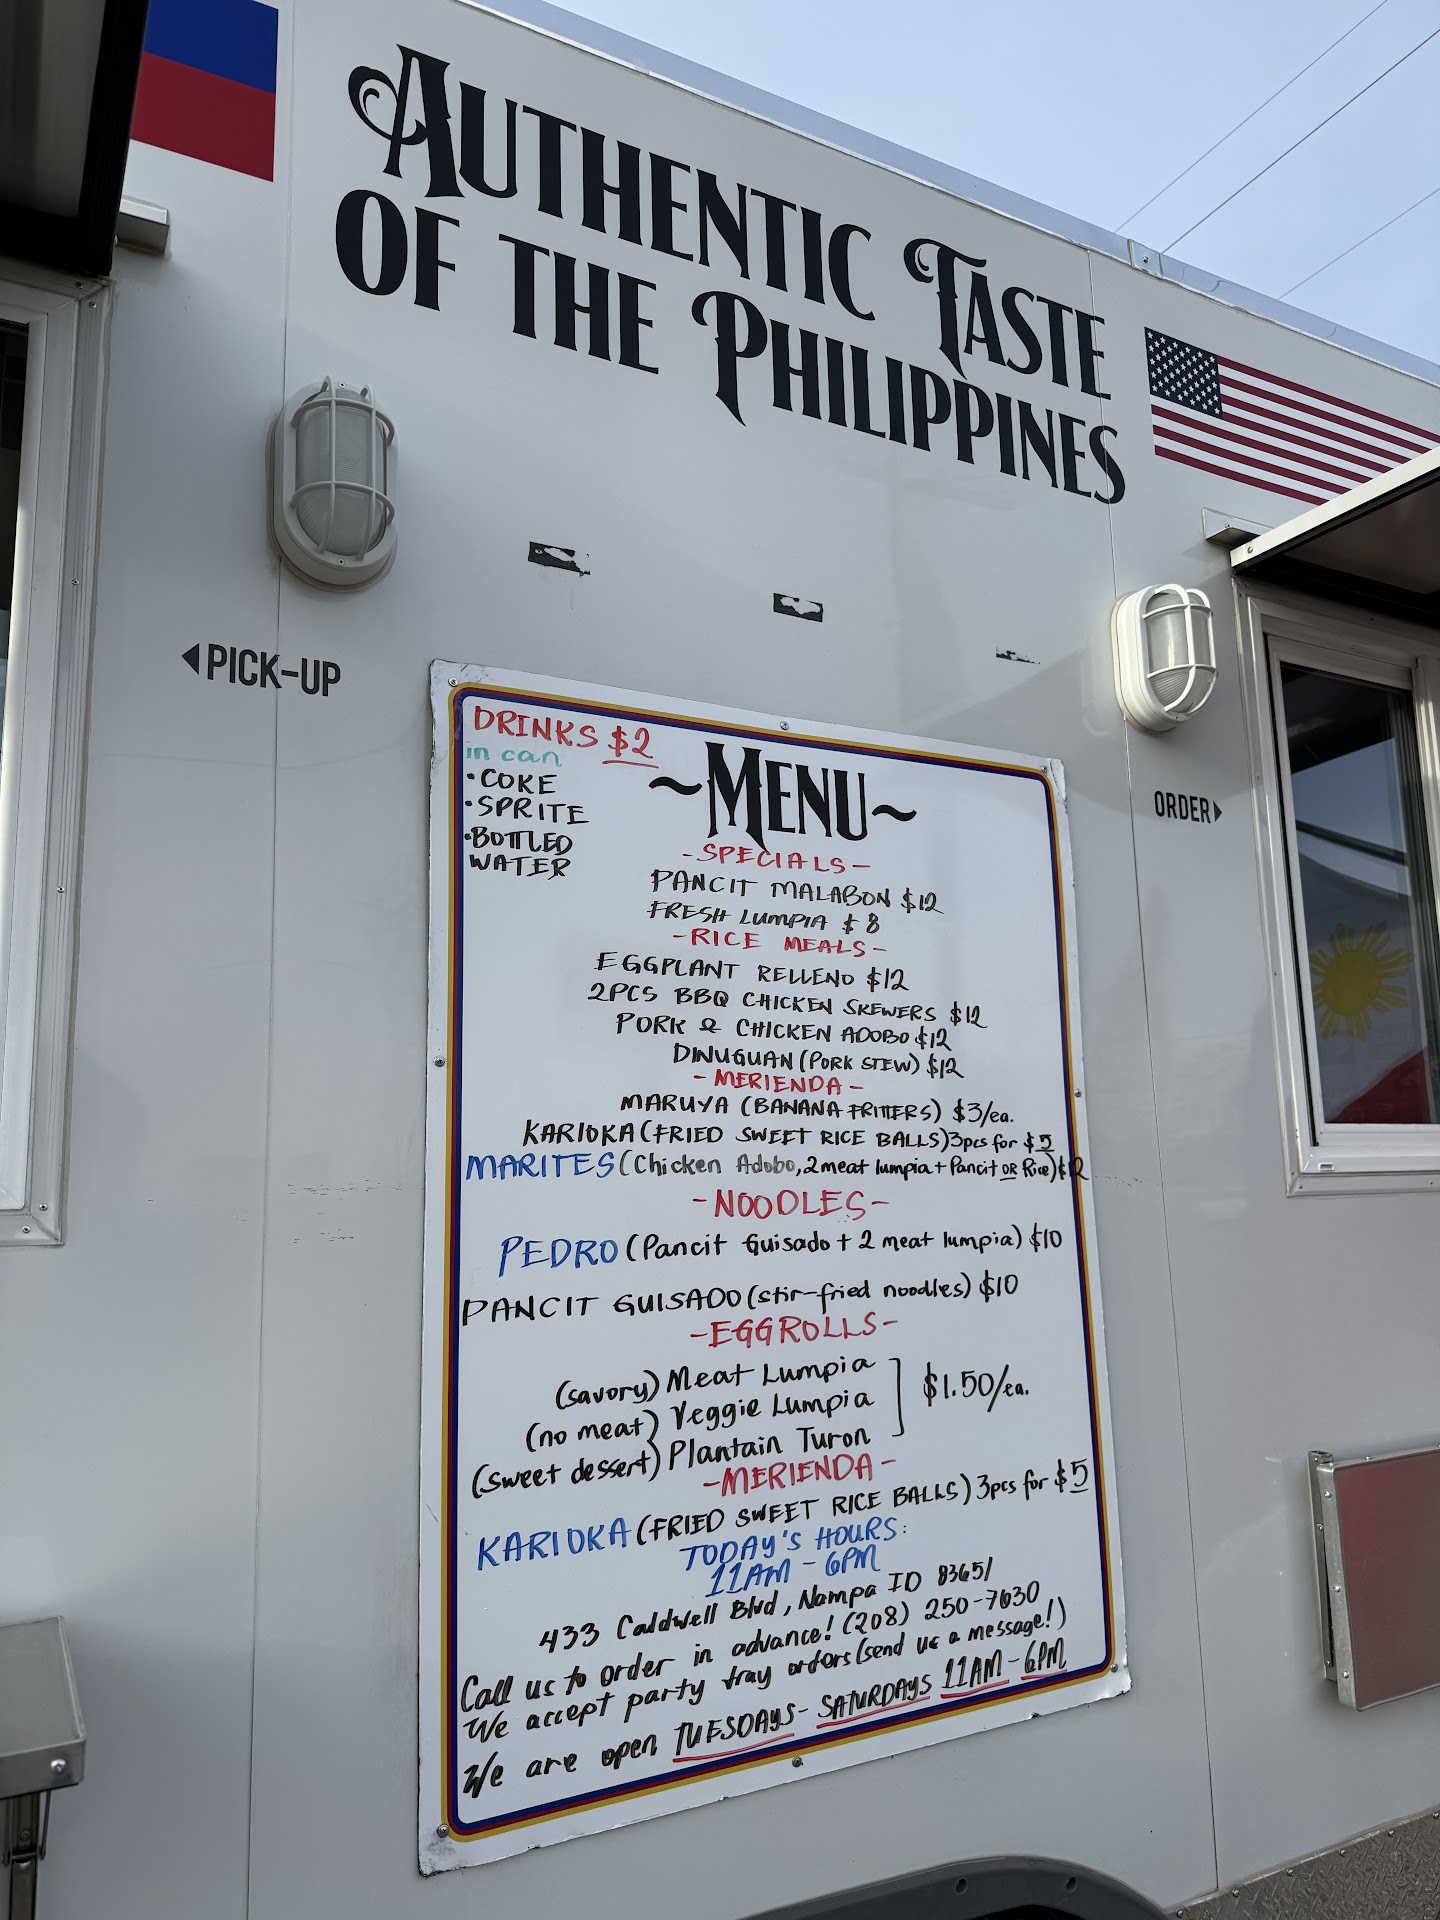 AUTHENTIC TASTE
OF THE PHILIPPINES
PICK-UP
ORDER
DRINKS $2
in can
•COKE
•SPRITE
•BOTTLED
WATER
~MENU~
-SPECIALS-
PANCIT MALABON $12
FRESH LUMPIA $8
-RICE MEALS-
EGGPLANT RELLENO $12
2PCS BBQ CHICKEN SKEWERS $12
PORK & CHICKEN ADOBO $12
DINUGUAN (PORK STEW) $12
-MERIENDA-
MARUYA (BANANA FRITTERS) $3/ea.
KARIOKA (FRIED SWEET RICE BALLS) 3pcs for $5
MARITES (Chicken Adobo, 2 meat lumpia + Pancit OR Rice) $12
-NOODLES-
PEDRO (Pancit Guisado + 2 meat lumpia) $10
PANCIT GUISADO (stir-fried noodles) $10
-EGGROLLS-
(savory) Meat Lumpia
(no meat) Veggie Lumpia
$1.50/ea.
(sweet dessert) Plantain Turon
-MERIENDA-
KARIOKA (FRIED SWEET RICE BALLS) 3pcs for $5
TODAY'S HOURS:
11AM - 6PM
433 Caldwell Blvd, Nampa ID 83651
Call us to order in advance! (208) 250-7630
We accept party tray orders (send us a message!)
We are open TUESDAYS- SATURDAYS 11AM - 6PM